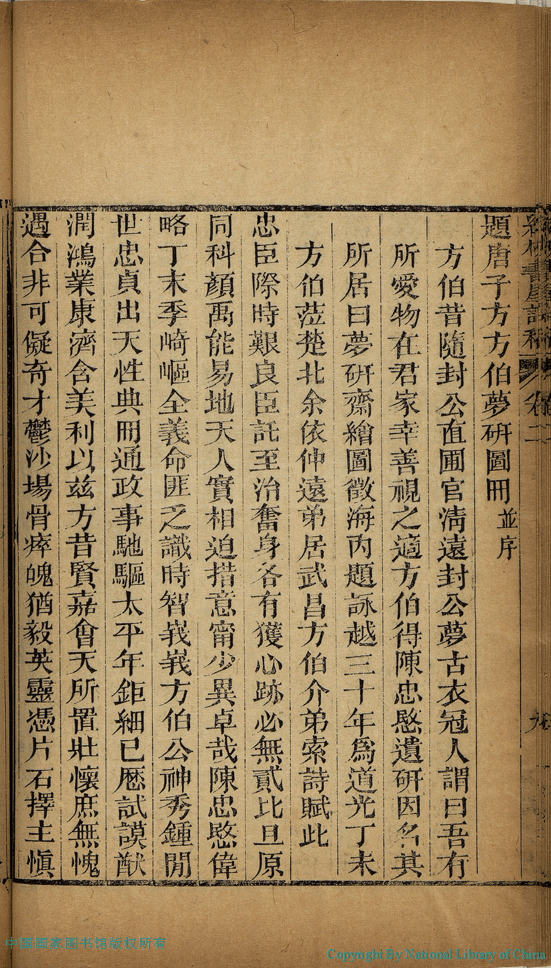 書屋詩稿 卷二 九
題唐子方方伯夢硏圖冊並序
方伯昔隨封公直圃官淸遠封公夢古衣冠人謂曰吾有
所愛物在君家幸善視之適方伯得陳忠愍遺硏因名其
所居曰夢硏齋繪圖徵海內題詠越三十年爲道光丁未
方伯蒞楚北余依仲遠弟居武昌方伯介弟索詩賦此
忠臣際時艱良臣託至治奮身各有獲心跡必無貳比旦原
同科顏禹能易地天人實相迫措意甯少異卓哉陳忠愍偉
略丁末季崎嶇全義命匪乏識時智峩峩方伯公神秀鍾閒
世忠貞出天性典冊通政事馳驅太平年鉅細已歷試謨猷
潤鴻業康濟含美利以兹方昔賢嘉會天所置壯懷庶無愧
遇合非可儗奇才鬱沙場骨瘁魄猶毅英靈憑片石擇主愼
中国国家图书馆版权所有
Copyright By National Library of China